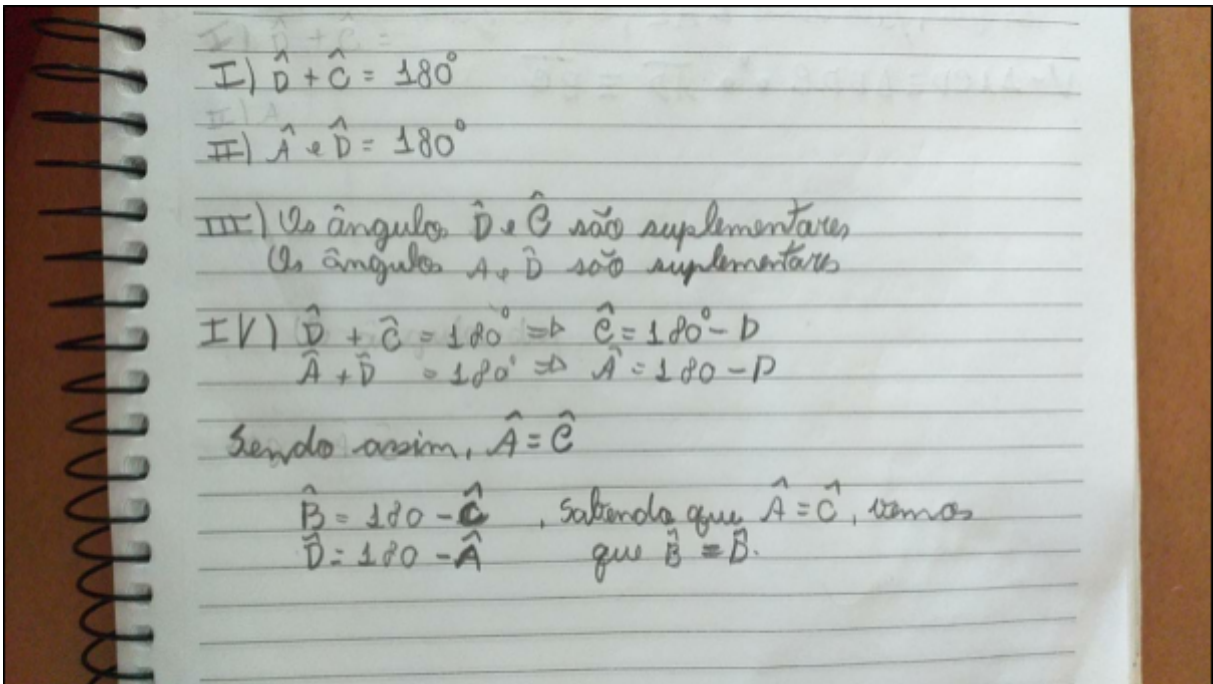 I) D̂ + Ĉ = 180°
II) Â e D̂ = 180°
III) Os ângulos D̂ e Ĉ são suplementares
Os ângulos A e D̂ são suplementars
IV) D̂ + Ĉ = 180° => Ĉ = 180° - D
Â + D̂ = 180° => Â = 180 - D
Sendo assim, Â = Ĉ
B̂ = 180 - Ĉ , Sabendo que Â = Ĉ, vemos
D̂ = 180 - Â que B̂ = D̂.